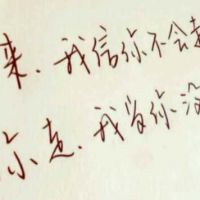 来、我信你不会走
你走、我当你没